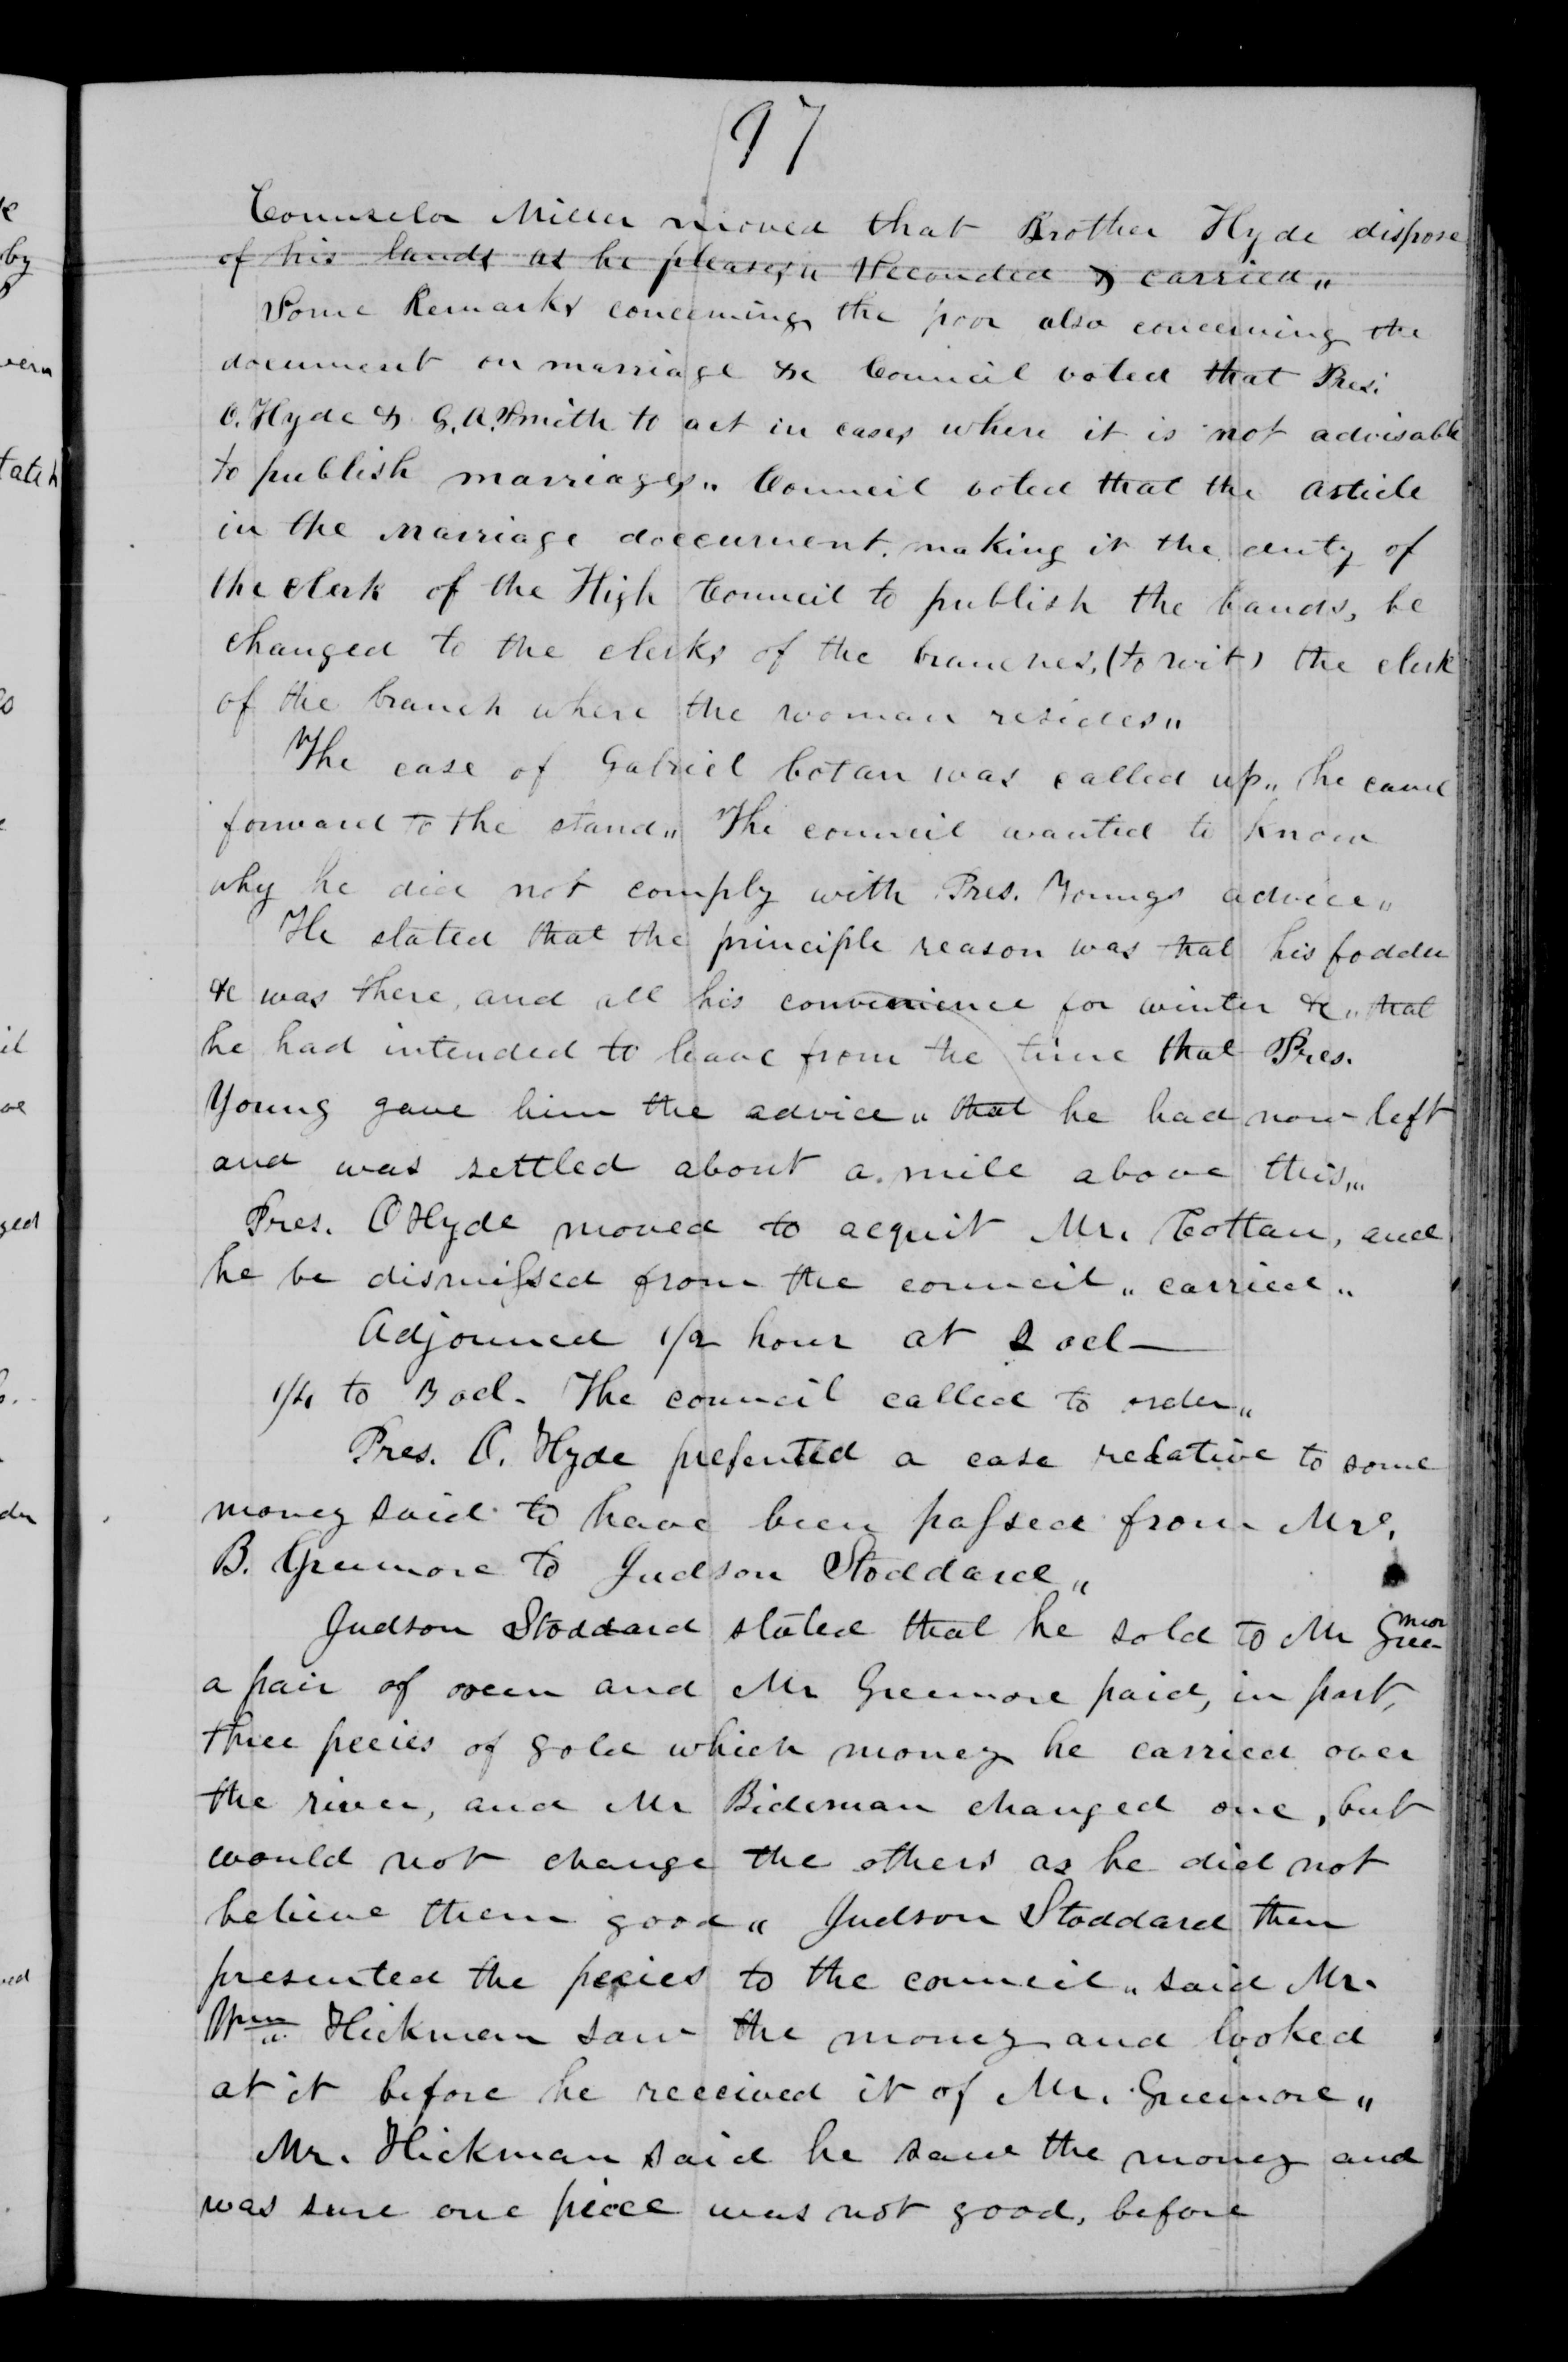 97
Counselor Miller moved that Brother Hyde dispose
of his lands as he pleases,, Seconded & carried,,
Some Remarks concerning the poor also concerning the
document on marriage &c Council voted that Pres.
O. Hyde & G. A. Smith to act in cases where it is not advisable
to publish marriages,, Council voted that the article
in the marriage doccument, making it the duty of
the clerk of the High Council to publish the bands, be
changed to the clerks of the branches, (to wit) the clerk
of the branch where the woman resides,,
The case of Gabriel Cotan was called up,, he came
forward to the stand,, The council wanted to know
why he did not comply with Pres. Youngs advice,,
He stated that the principle reason was that his fodder
&c was there, and all his convenience for winter &c,, that
he had intended to leave from the time that Pres.
Young gave him the advice,, that he had now left
and was settled about a mile above this,,,
Pres. O Hyde moved to acquit Mr. Cottan, and
he be dismissed from the council,, carried,,
Adjourned 1/2 hour at 2 ocl—
1/4 to 3 ocl. The council called to order,,
Pres. O. Hyde presented a case relative to some
money said to have been passed from Mr.
B. Greemore to Judson Stoddard,,
Judson Stoddard stated that he sold to Mr Greemor
a pair of oxen and Mr Greemore paid, in part,
three peeies of gold which money he carried over
the river, and Mr Bideman changed one, but
would not change the others as he did not
believe them good,, Judson Stoddard then
presented the peeies to the council,, said Mr.
Wm. Hickman saw the money and looked
at it before he received it of Mr. Greemore,,
Mr. Hickman said he saw the money and
was sure one piece was not good, before